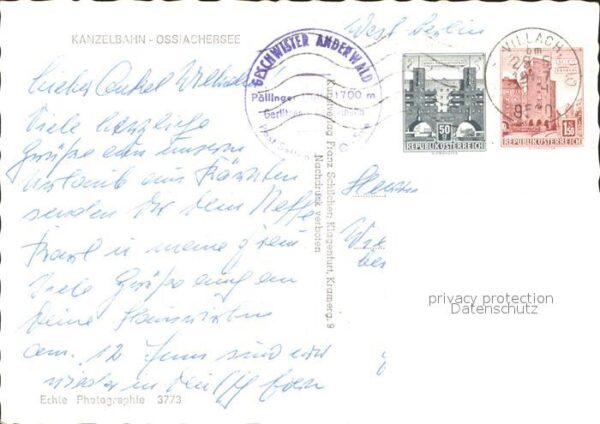 KANZELBAHN - OSSIACHERSEE
West Berlin
GESCHWISTER ANDERWALD
Pöllinger 1700 m
Gerlitzen
VILLACH
50 g
REPUBLIK ÖSTERREICH
1.50
REPUBLIK ÖSTERREICH
Lieber Onkel Wilhelm
Viele herzliche
Grüße aus unserem
Urlaub aus Kärnten
senden Dir Dein Neffe
Karl u meine
Viele Grüße auch an
Deine Hauswirtin
am. 12 Juni sind wir
wieder in
Herrn
privacy protection
Datenschutz
Kunstverlag Franz Schilcher, Klagenfurt, Kramerg. 9
Nachdruck verboten
Echte Photographie 3773